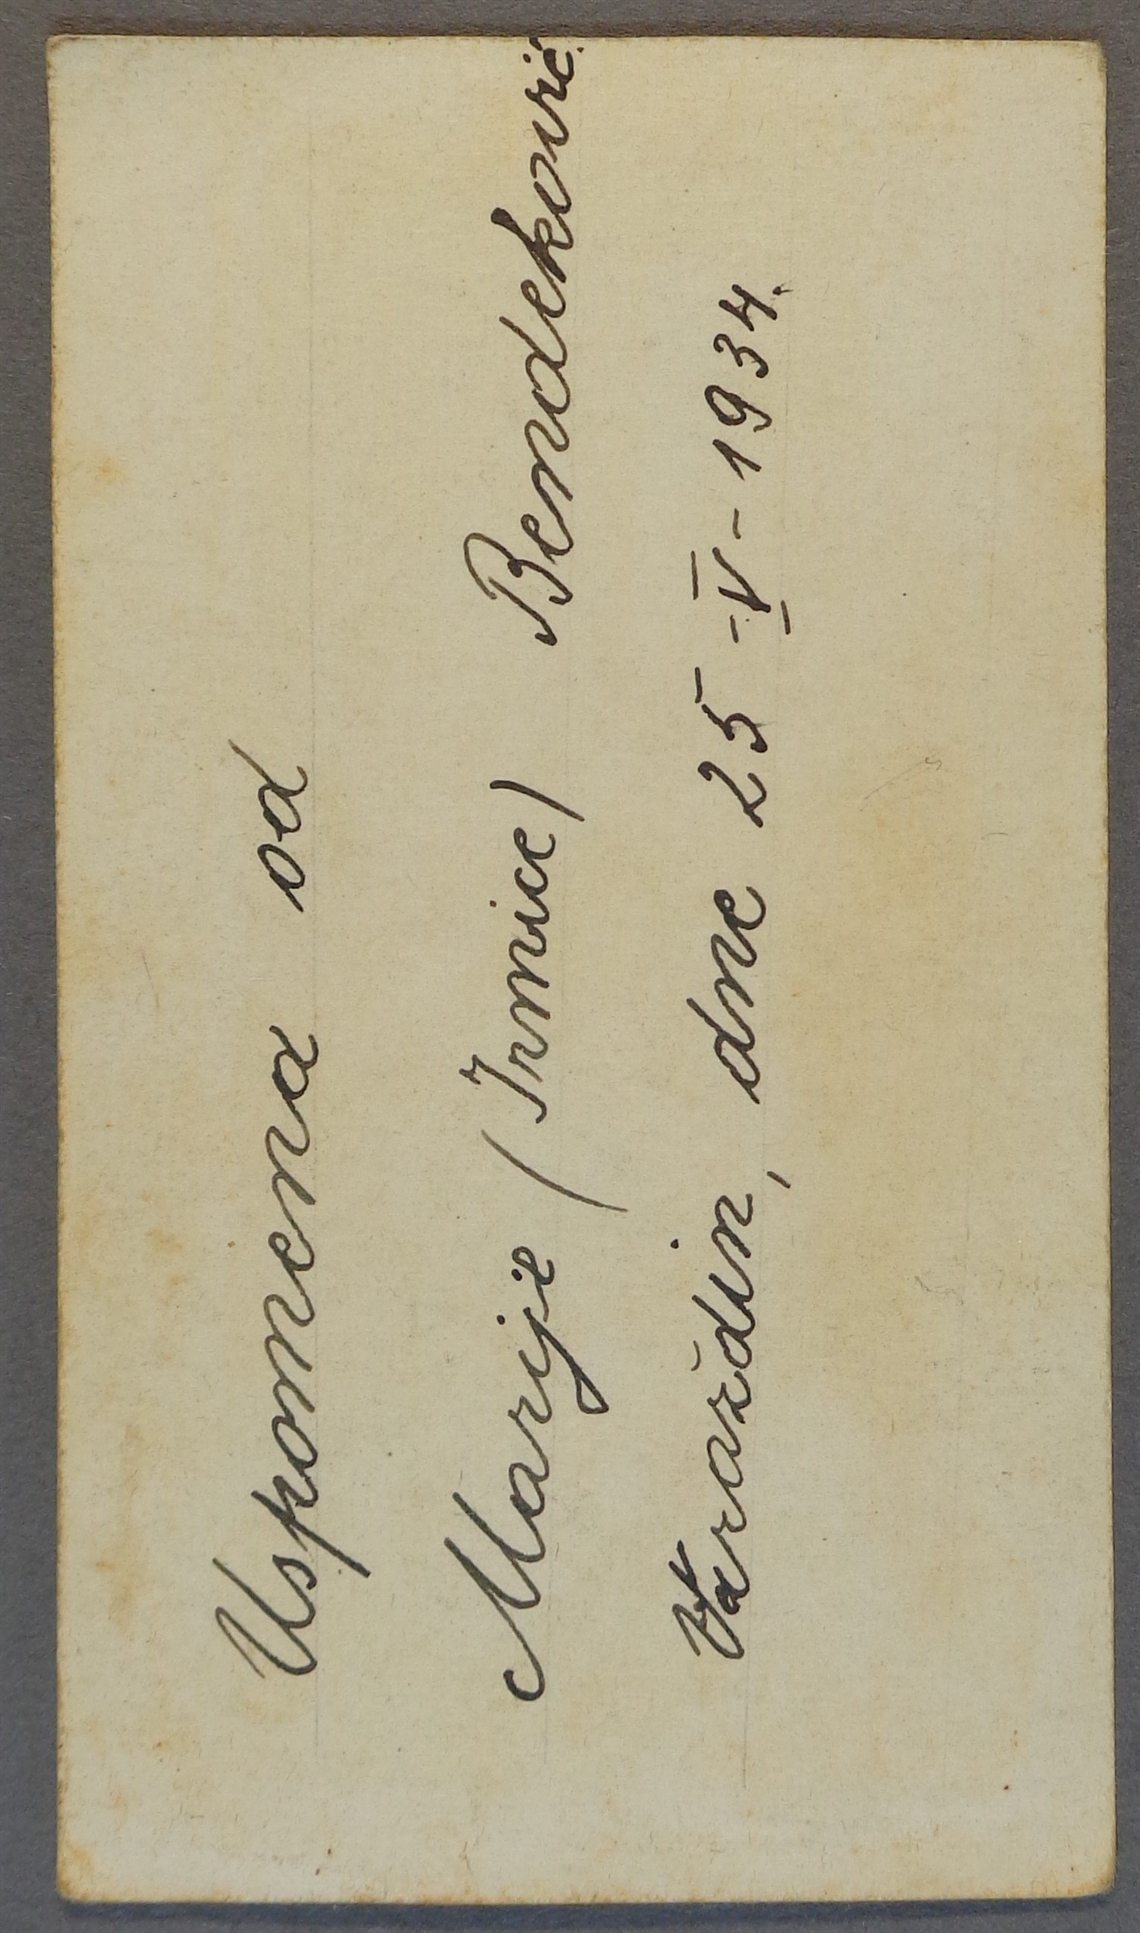 Uspomena od
Marije (Irmice) Bendeković
Varaždin, dne 25-V-1934.